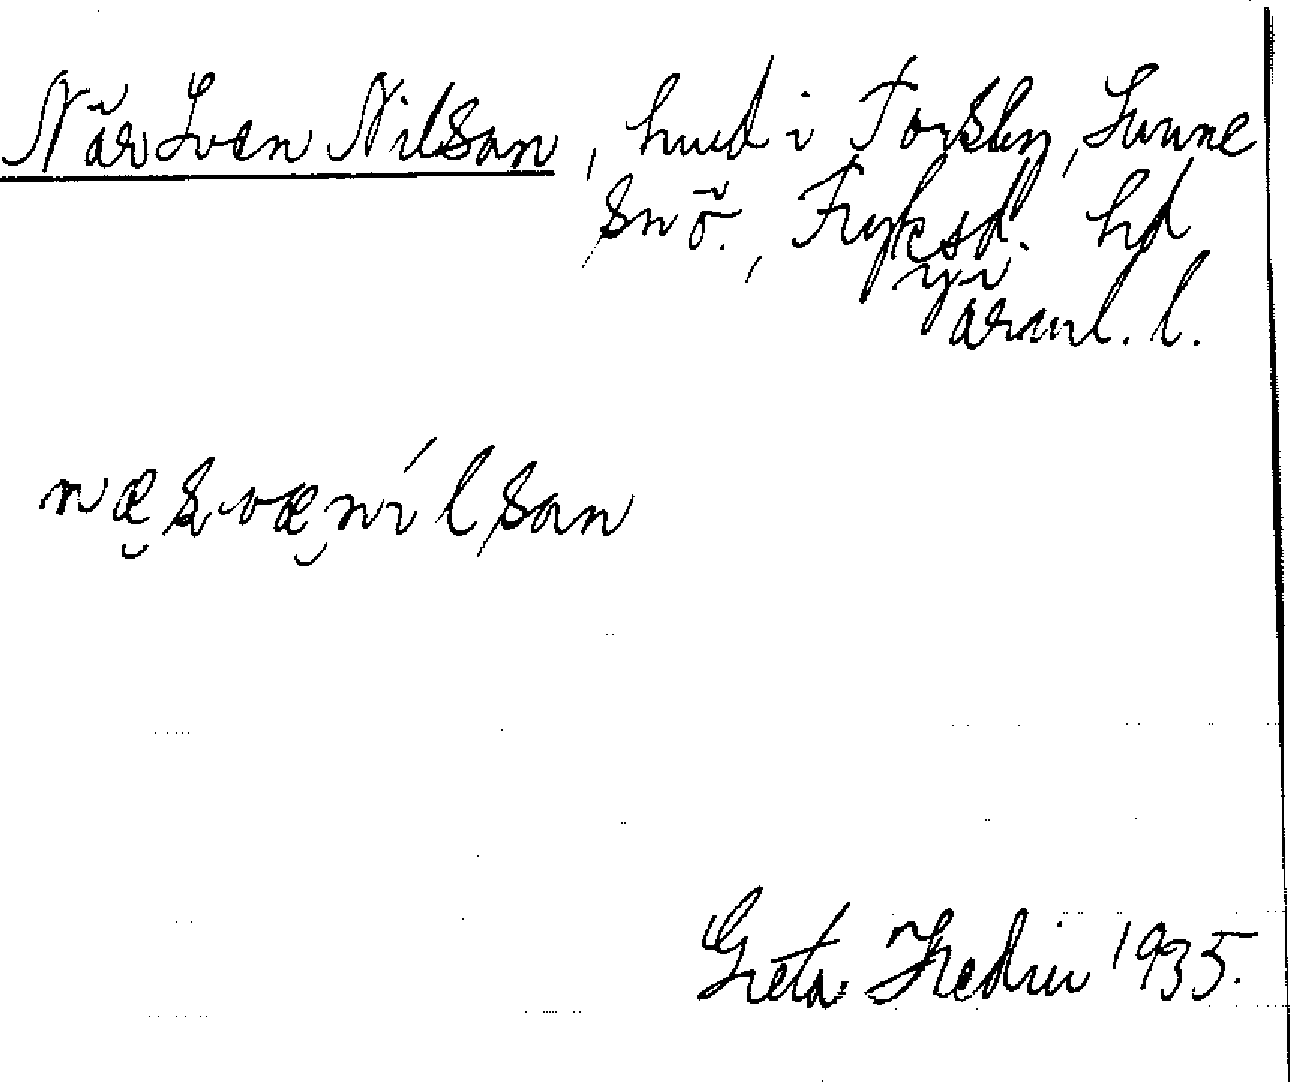 När Sven Nilsson, hud i Torsby, Sunne
snö., Fryksd. hd
Värml. l.
næ svæníl son
Greta Hedin 1935.